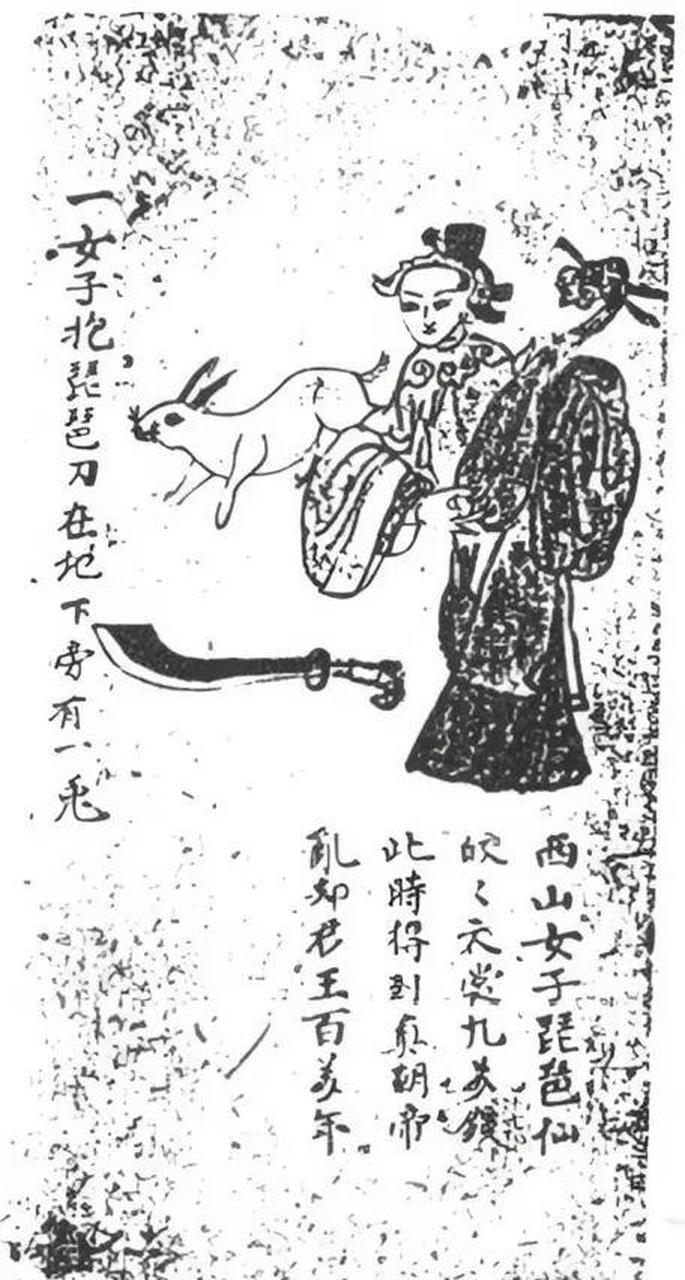 西山女子琵琶仙
皎々衣裳九
此時得到 朝帝
亂却君王百 年
一女子抱琵琶刀在地下旁有一兎